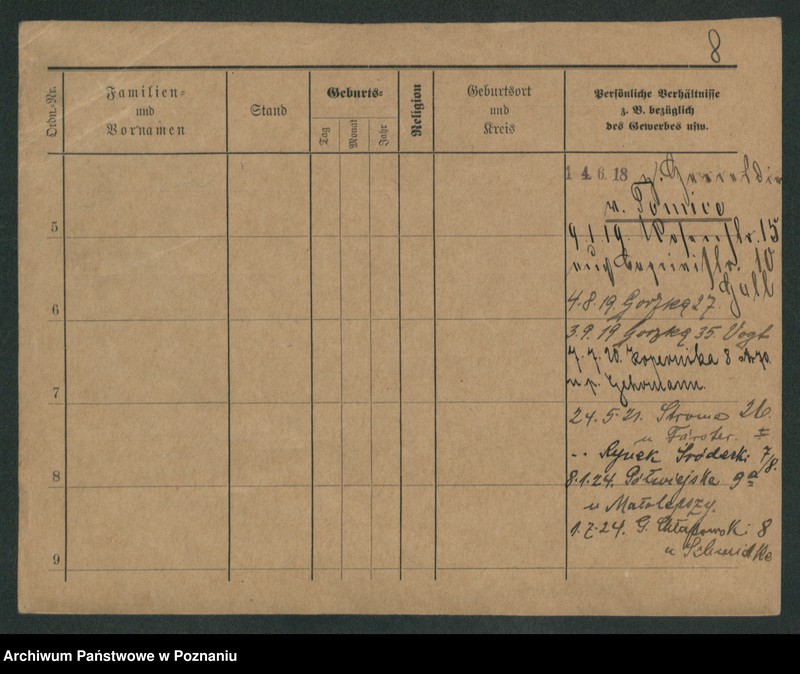 8
Ordn.-Nr.
Familien-
und
Vornamen
Stand
Geburts-
Tag
Monat
Jahr
Religion
Geburtsort
und
Kreis
Persönliche Verhältnisse
z. B. bezüglich
des Gewerbes usw.
14.6.18
v.
5
9.1.19. Posenstr. 15
str. 10
Gall
6
4.8.19 Gorzka 27.
3.9.19 Gorzka 35. Vogt
7.7.20. Kopernika 8
u p. Gehrmann.
7
24.5.21. Stroma 26
u Förster. II
-- Rynek Śródecki 7/8.
8
8.1.24. Półwiejska 9a
u Małolepszy.
1.7.24. G. Chłapowski 8
u Schmidtke
9
Archiwum Państwowe w Poznaniu